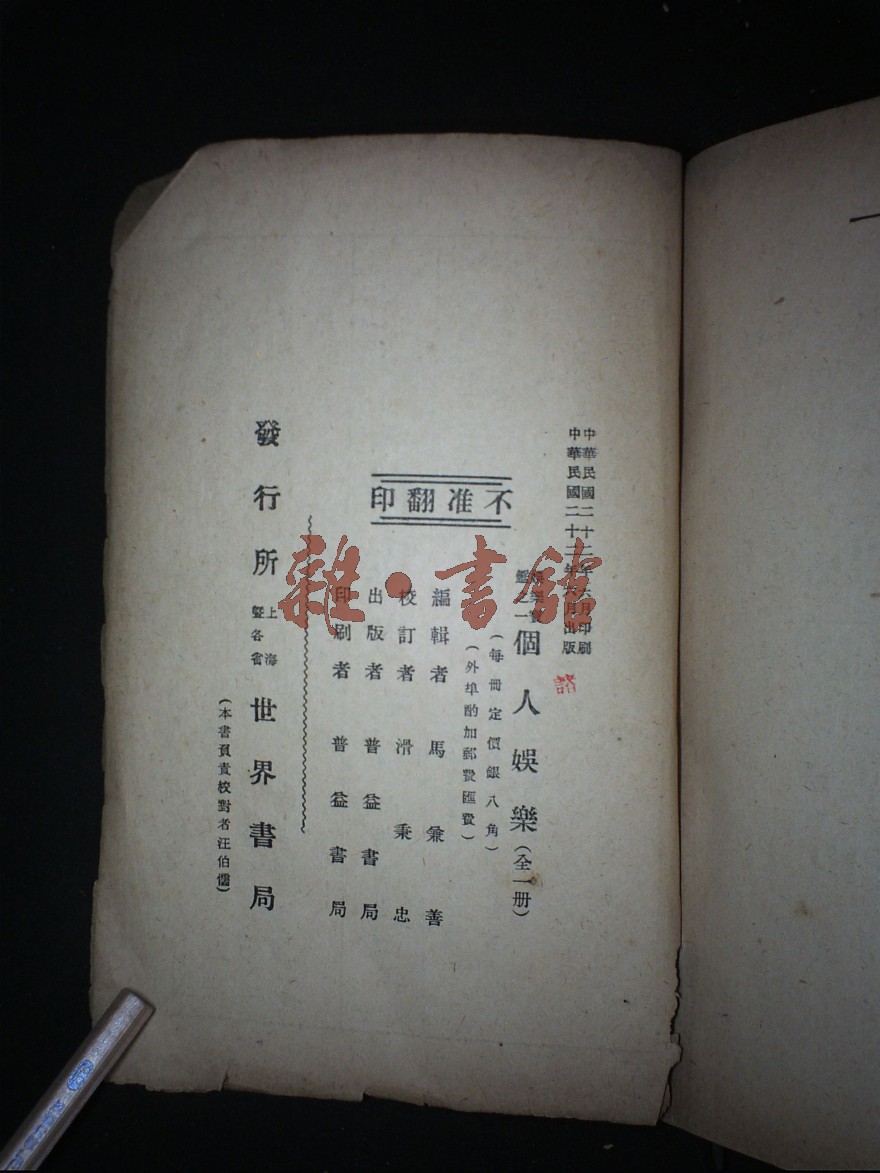 中華民國二十二年六月印刷
中華民國二十二年六月出版
娛樂寶
鑑之一
個人娛樂（全一册）
（每册定價銀八角）
（外埠酌加郵費匯費）
不准翻印
編輯者 馬兼善
校訂者 滑秉忠
出版者 普益書局
印刷者 普益書局
發行所
上海
暨各省
世界書局
（本書負責校對者汪伯儒）
雜·書館